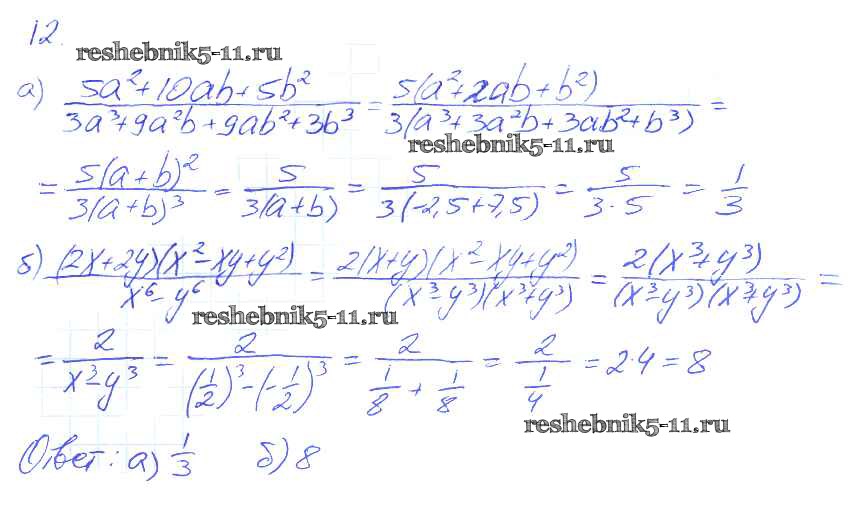 12.
reshebnik5-11.ru
а) (5a²+10ab+5b²)/(3a³+9a²b+9ab²+3b³) = 5(a²+2ab+b²)/3(a³+3a²b+3ab²+b³) =
reshebnik5-11.ru
= 5(a+b)²/3(a+b)³ = 5/3(a+b) = 5/3(-2,5+7,5) = 5/3·5 = 1/3
б) (2x+2y)(x²-xy+y²)/x⁶-y⁶ = 2(x+y)(x²-xy+y²)/(x³-y³)(x³+y³) = 2(x³+y³)/(x³-y³)(x³+y³) =
reshebnik5-11.ru
= 2/x³-y³ = 2/(1/2)³-(-1/2)³ = 2/(1/8+1/8) = 2/(1/4) = 2·4 = 8
reshebnik5-11.ru
Ответ: а) 1/3 б) 8